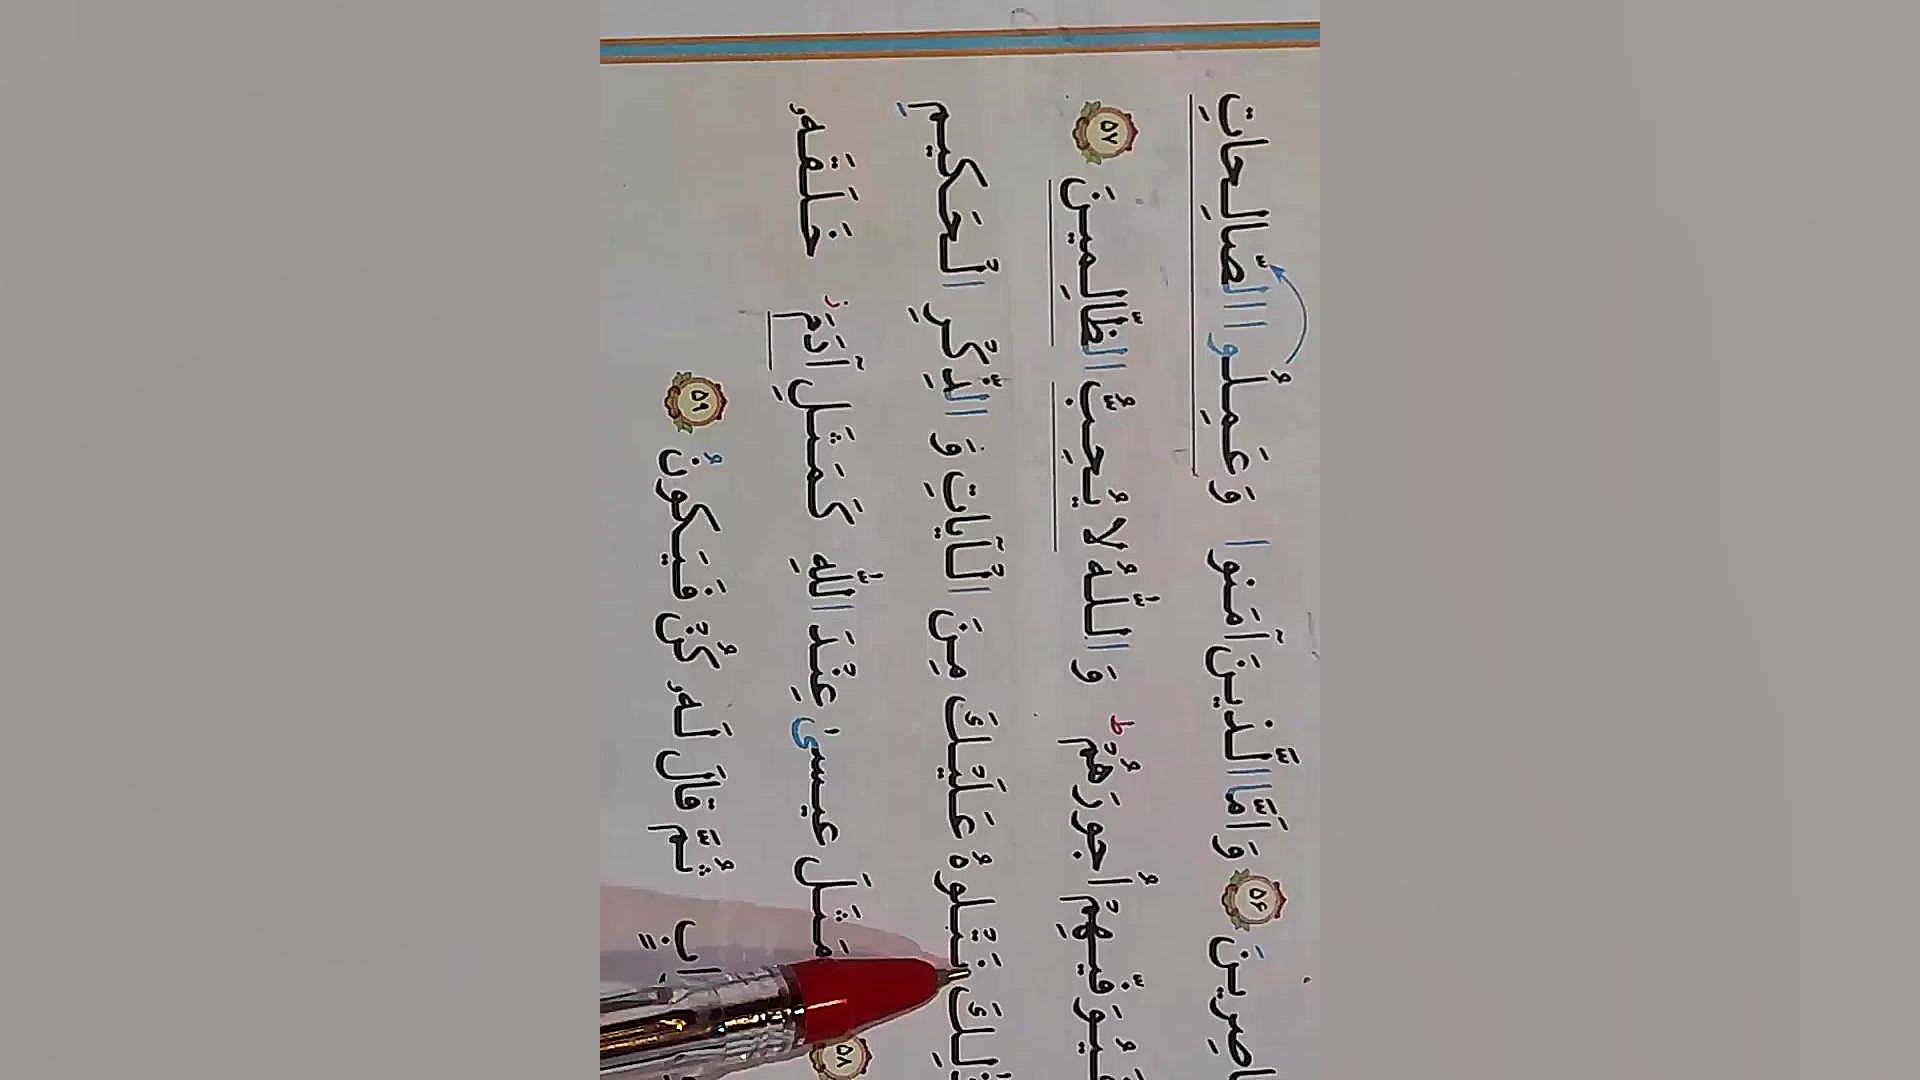 ـاصِرينَ ﴿۵۶﴾ وَ اَمَّا الَّذينَ آمَنوا وَ عَمِلُوا الصّالِحاتِ
فَيُوَفّيهِمْ اُجورَهُمْ ۗ ط وَ اللّٰهُ لا يُحِبُّ الظّالِمينَ ﴿۵۷﴾
ذٰلِكَ نَتْلوهُ عَلَيْكَ مِنَ الْآياتِ وَ الذِّكْرِ الْحَكيمِ
﴿۵۸﴾ مَثَلَ عيسىٰ عِنْدَ اللّٰهِ كَمَثَلِ آدَمَ ز خَلَقَهُ
ـابٍ ثُمَّ قالَ لَهُ كُنْ فَيَكونُ ﴿۵۹﴾